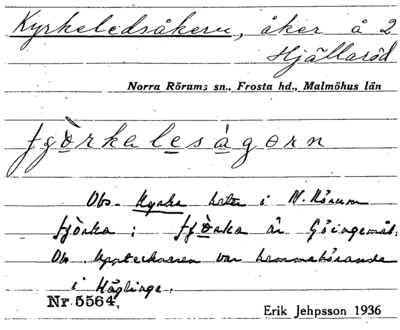 Kyrkeledsåkern, åker å 2
Hjällaröd
Norra Rörums sn., Frosta hd., Malmöhus län
fjòrkalesàgorn
Obs. Kyrka heter i N. Rörum
fjòrka; fjòrka är Göingemål.
Obs. Uppteckaren var hemmahörande
i Häglinge.
Nr 5564,
Erik Jehpsson 1936